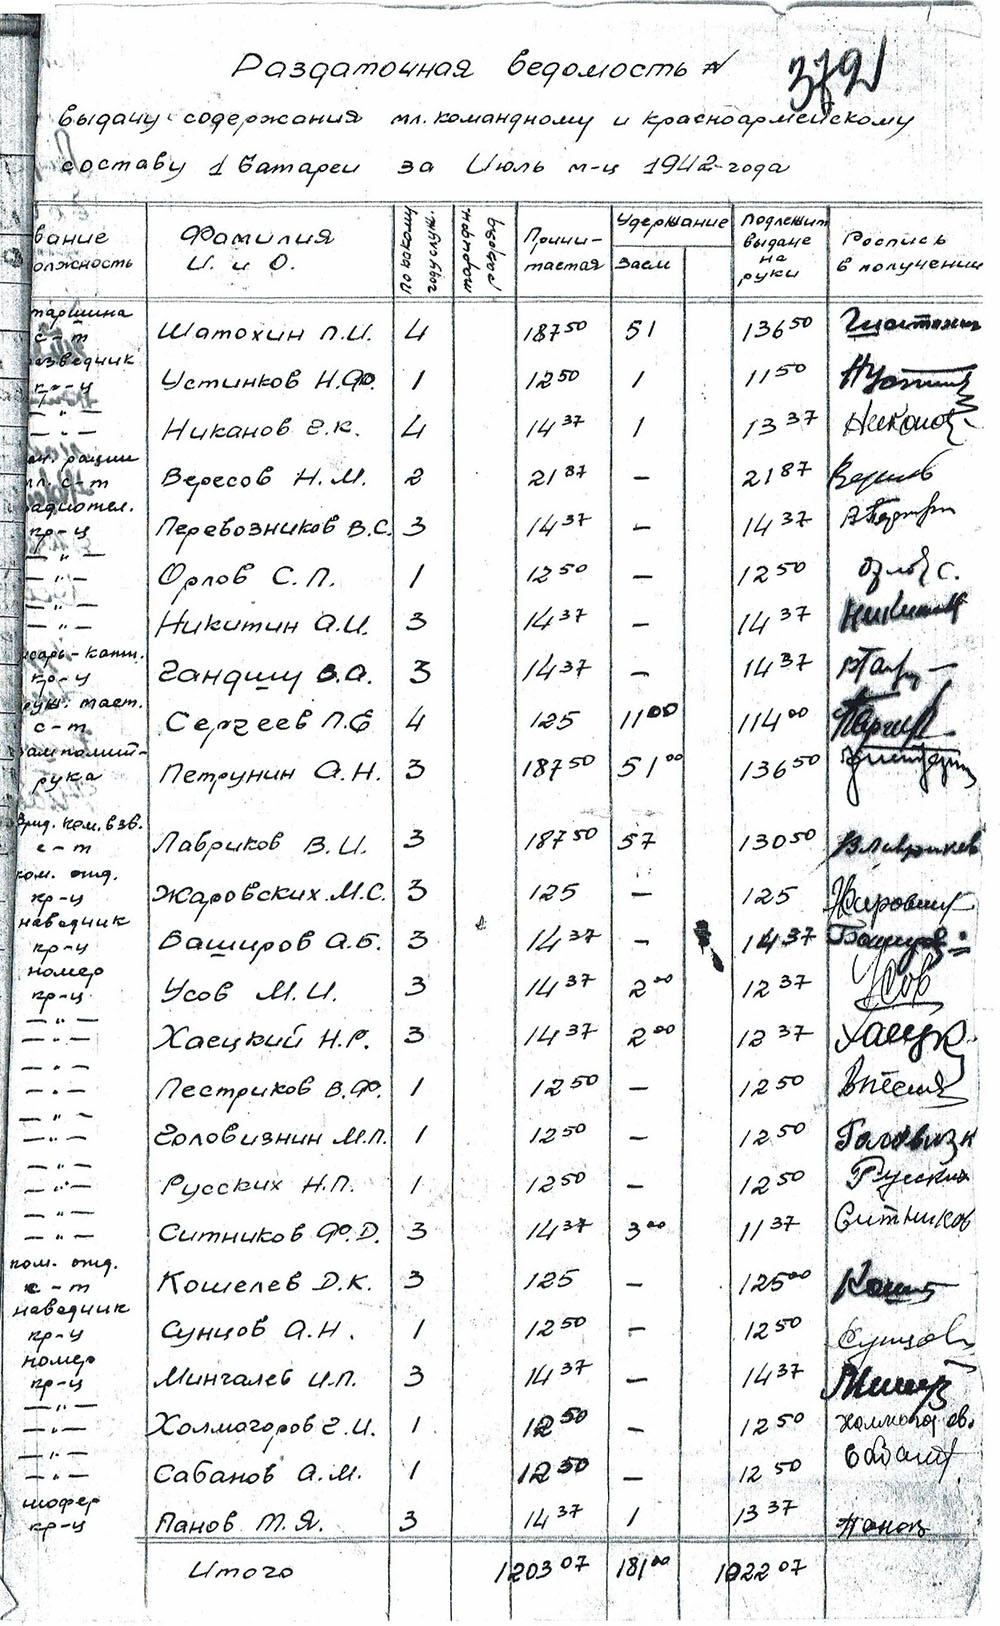 Раздаточная ведомость №
3721
выдачу содержания мл. командному и красноармейскому
составу 1 батареи за Июль м-ц 1942 года
вание
олжность
Фамилия
И. и О.
Причи-
тается
Удержание
Заем
Подлежит
выдаче
на
руки
Роспись
в получении
таршина
с-т Шатохин П.И. 4 187 50 51 136 50
азведчик
кр-ц Устинков Н.Ф. 1 12 50 1 11 50
— " —
— " — Никанов Г.К. 4 14 37 1 13 37
рации
мл. с-т Вересов Н.М. 2 21 87 — 21 87
адиотел.
кр-ц Перевозников В.С. 3 14 37 — 14 37
— " —
— " — Орлов С.П. 1 12 50 — 12 50 Орлов С.
— " —
— " — Никитин А.И. 3 14 37 — 14 37 Никитин
исарь-капт.
кр-ц Гандшу В.А. 3 14 37 — 14 37
с-т Сергеев П.Е 4 125 11 00 114 00
замполит-
рука Петрунин А.Н. 3 187 50 51 00 136 50
Врид. ком. взв.
с-т Лавриков В.И. 3 187 50 57 130 50 В Лавриков
ком. отд.
кр-ц Жаровских М.С. 3 125 — 125
наводчик
кр-ц Баширов А.Б. 3 14 37 — 14 37 Баширов
номер
кр-ц Усов М.И. 3 14 37 2 00 12 37 Усов
— " —
— " — Хаецкий Н.Р. 3 14 37 2 00 12 37 Хаецк
— " —
— " — Пестриков В.Ф. 1 12 50 — 12 50
— " —
— " — Головизнин М.П. 1 12 50 — 12 50 Головизн
— " —
— " — Русских Н.П. 1 12 50 — 12 50 Русских
— " —
— " — Ситников Ф.Д. 3 14 37 3 00 11 37 Ситников
ком. отд.
с-т Кошелев Д.К. 3 125 — 125 00
наводчик
кр-ц Сунцов А.Н. 1 12 50 — 12 50 Сунцов
номер
кр-ц Мингалев И.П. 3 14 37 — 14 37
— " —
— " — Холмогоров Г.И. 1 12 50 — 12 50
— " —
— " — Сабанов А.М. 1 12 50 — 12 50
шофер
кр-ц Панов М.Я. 3 14 37 1 13 37 Панов
Итого 1203 07 181 00 1022 07